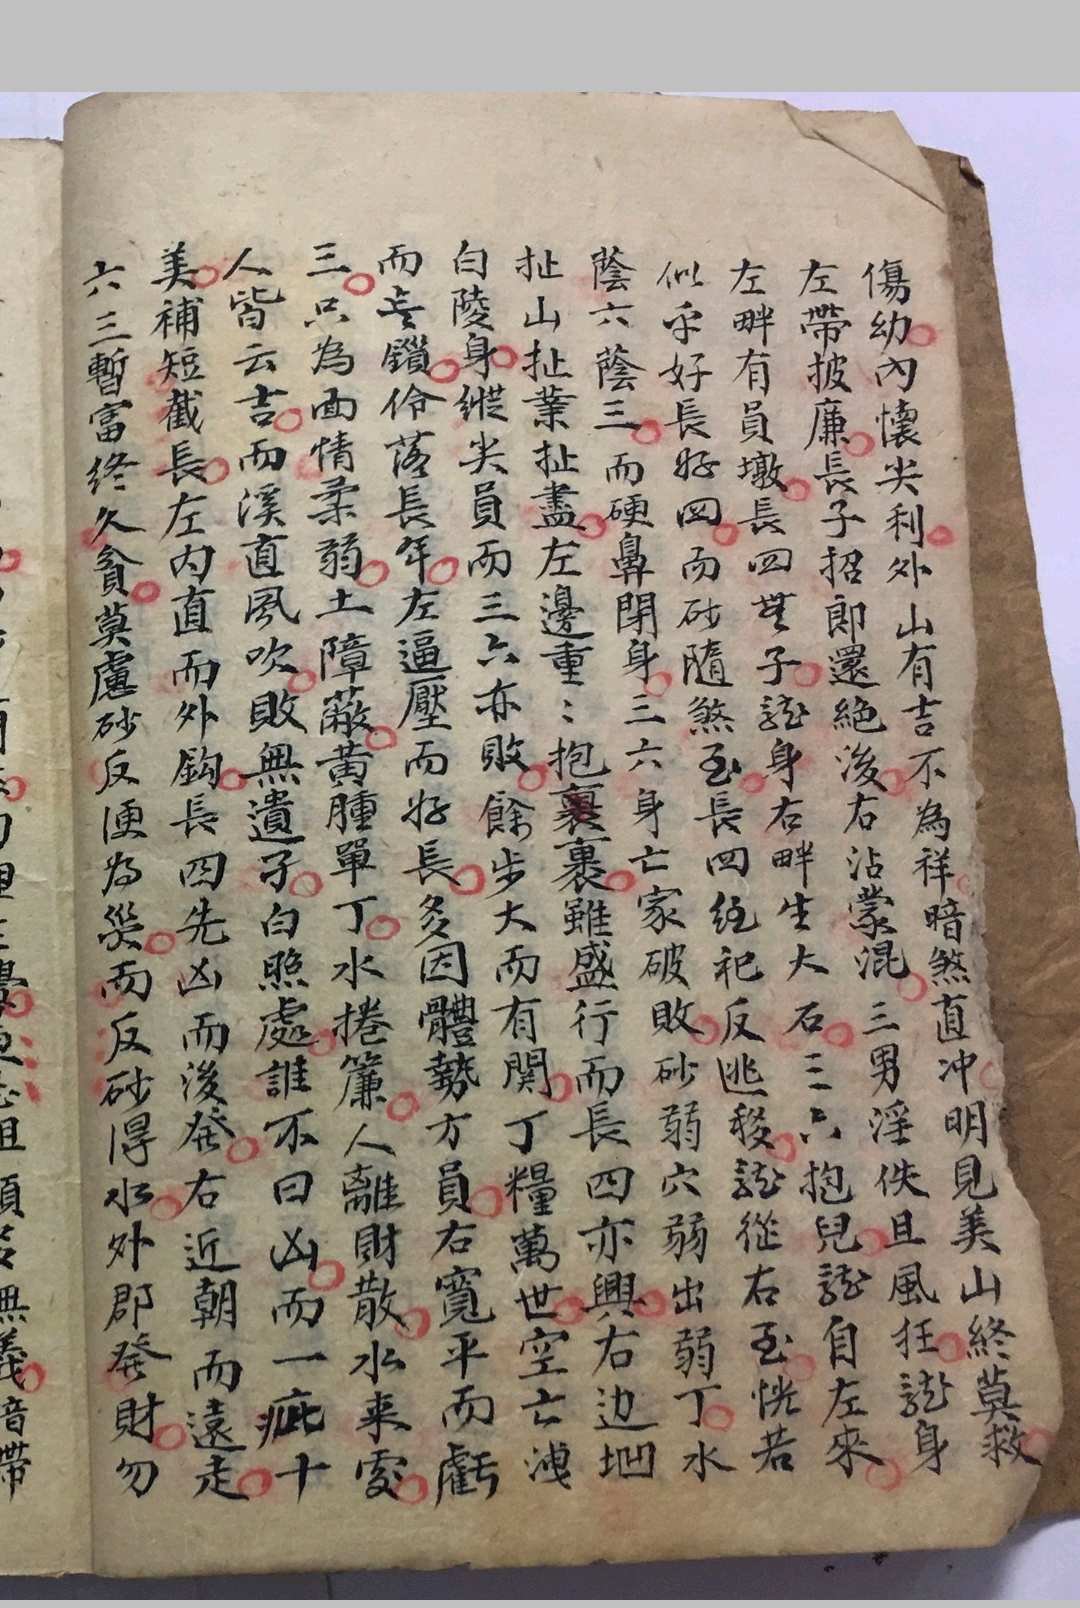 傷幼內懷尖利外山有吉不為祥暗煞直冲明見美山終莫救
左帶披廉長子招郎還絕後右沾蒙混三男淫佚且風狂龍身
左畔有員墩長四無子龍身右畔生大石三六抱兒龍自左來
似乎好長好四而砂隨煞至長四経祀反逃移龍從右至恍若
蔭六蔭三而硬鼻閉身三六身亡家破敗砂弱穴弱出弱丁水
扯山扯業扯盡左邊重：抱裹裹雖盛行而長四亦興右边坳
白陵身縱尖員而三六亦敗餘步大而有関丁糧萬世空亡洩
而無鎖伶落長年左逼壓而好長多因體勢方員右寬平而虧
三只為面情柔弱土障蔽黃腫單丁水捲簾人離財散水来處
人皆云吉而溪直風吹敗無遺孑白照處誰不曰凶而一疵十
美補短截長左内直而外鈎長四先凶而後発右近朝而遠走
六三暫富終久貧莫慮砂反便為災而反砂得水外郡発財勿